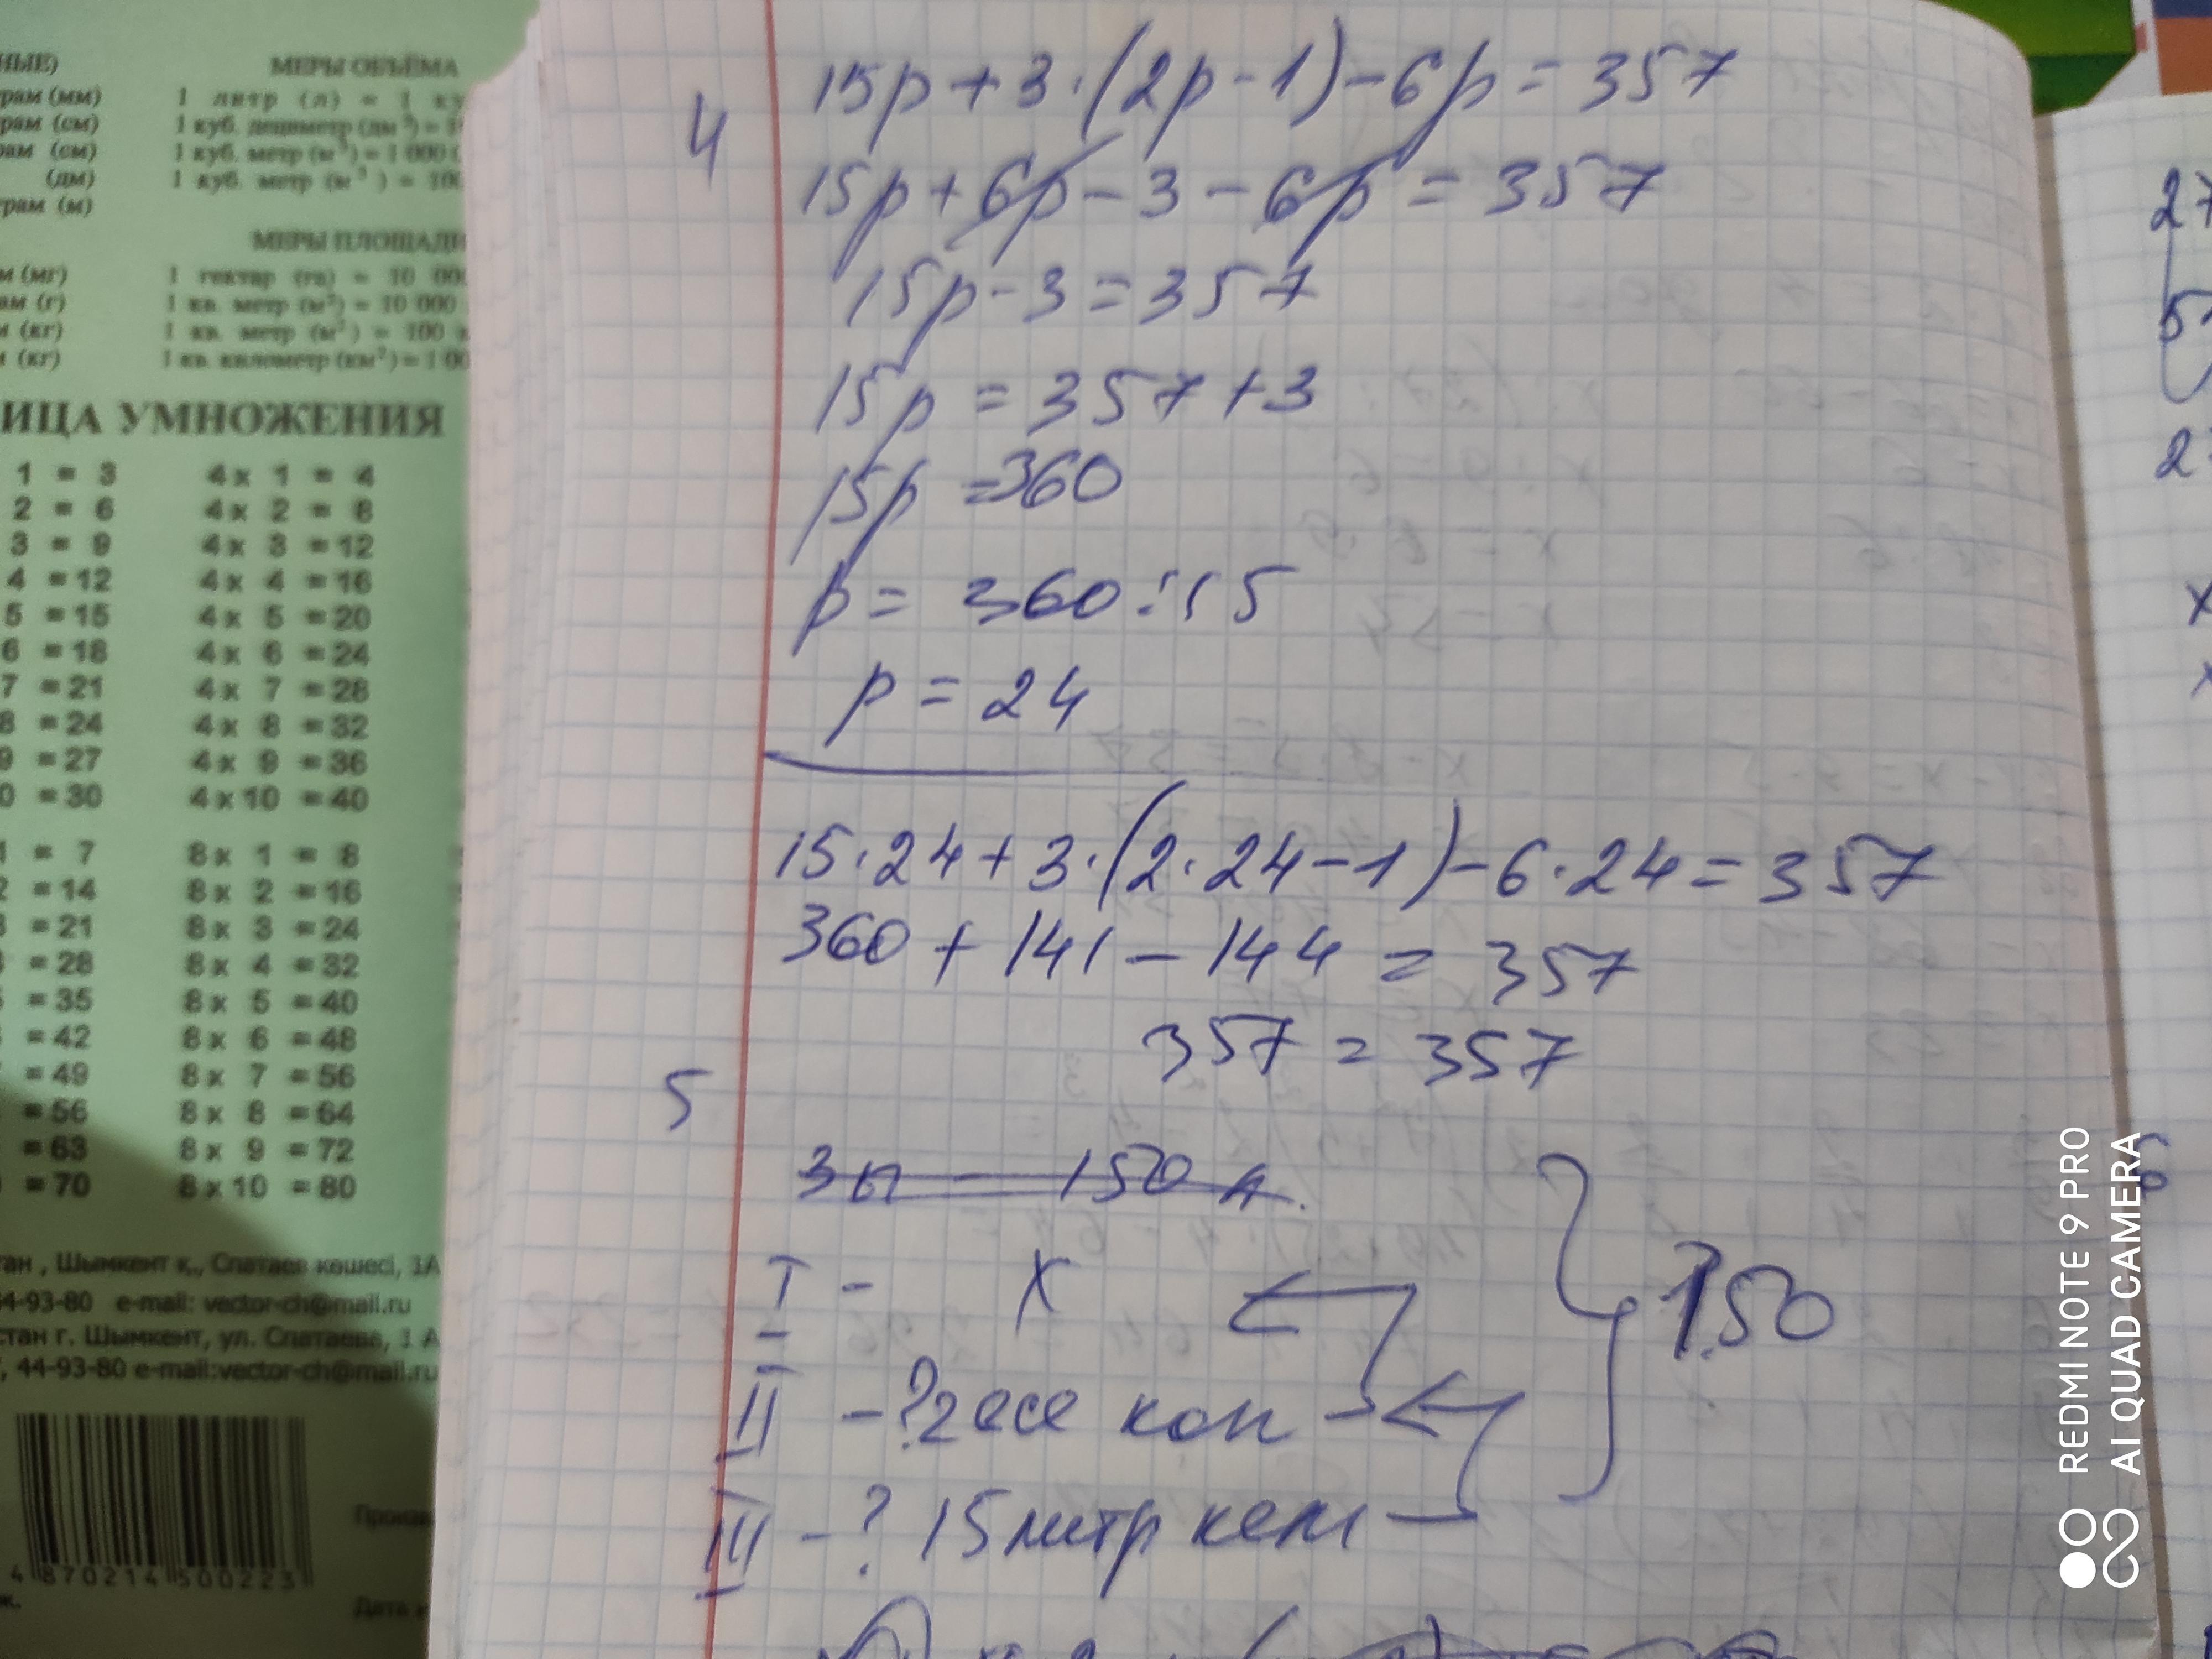 НЫЕ)
рам (мм)
рам (см)
рам (см)
(дм)
рам (м)
МЕРЫ ОБЪЁМА
1 литр (л) = 1 ку
1 куб. дециметр (дм³) = 1
1 куб. метр (м³) = 1 000
1 куб. метр (м³) = 100
МЕРЫ ПЛОЩАДИ
м (мг)
ам (г)
(кг)
(кг)
1 гектар (га) = 10 00
1 кв. метр (м²) = 10 000
1 кв. метр (м²) = 100
1 кв. километр (км²) = 1 00
ИЦА УМНОЖЕНИЯ
1 = 3 4 x 1 = 4
2 = 6 4 x 2 = 8
3 = 9 4 x 3 = 12
4 = 12 4 x 4 = 16
5 = 15 4 x 5 = 20
6 = 18 4 x 6 = 24
7 = 21 4 x 7 = 28
8 = 24 4 x 8 = 32
9 = 27 4 x 9 = 36
0 = 30 4 x 10 = 40
1 = 7 8 x 1 = 8
2 = 14 8 x 2 = 16
3 = 21 8 x 3 = 24
= 28 8 x 4 = 32
= 35 8 x 5 = 40
= 42 8 x 6 = 48
= 49 8 x 7 = 56
= 56 8 x 8 = 64
= 63 8 x 9 = 72
= 70 8 x 10 = 80
тан , Шымкент қ., Спатаев көшесі, 1А
44-93-80 e-mail: vector-ch@mail.ru
стан г. Шымкент, ул. Спатаева, 1 А
, 44-93-80 e-mail:vector-ch@mail.ru
4 870214 500223
Произв
Дата
4
15p + 3 · (2p - 1) - 6p = 357
15p + 6p - 3 - 6p = 357
15p - 3 = 357
15p = 357 + 3
15p = 360
p = 360 : 15
p = 24
15 · 24 + 3 · (2 · 24 - 1) - 6 · 24 = 357
360 + 141 - 144 = 357
357 = 357
5
150
I - x
II - ? 2 есе коп
III - ? 15 литр кем
150
27
5
2
x
x
REDMI NOTE 9 PRO
AI QUAD CAMERA